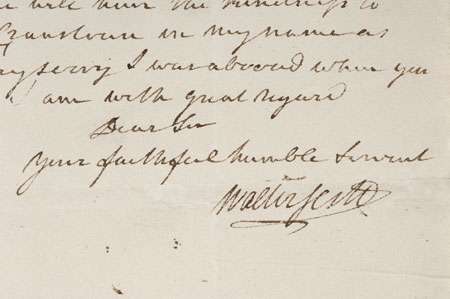 will have the kindness to
in my name as
I was abroad when you
I am with great regard
Dear Sir
Your faithful humble Servant
Walter Scott